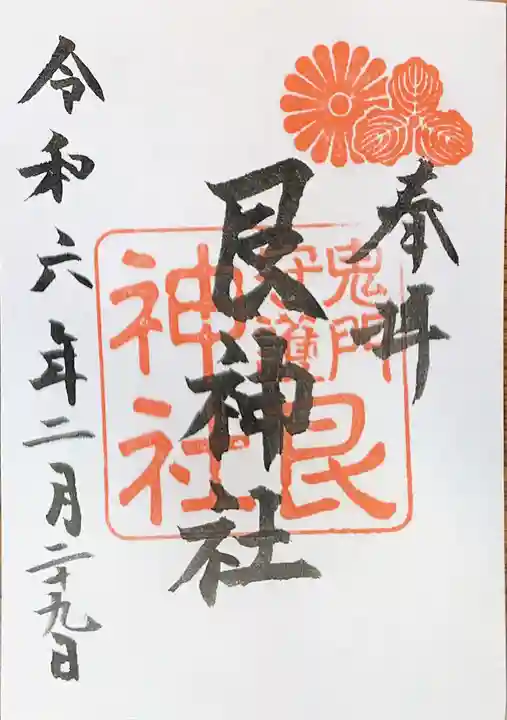 奉拝
鬼門
守護
艮
神社
艮神社
令和六年二月二十九日